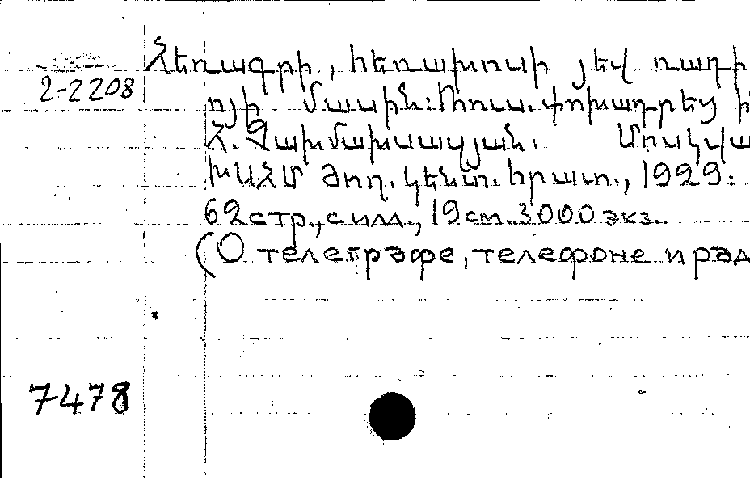 Հեռագրի, հեռախոսի յեվ ռադի
2-2208
ոյի մասին: Ռուս. փոխադրեց
Հ. Չախմախսազյան. Մոսկվա
ԽԱՀՄ Ժող. կենտ. հրատ., 1929.
62 стр., с илл., 19 см. 3000 экз.
(О телеграфе, телефоне и рад
7478